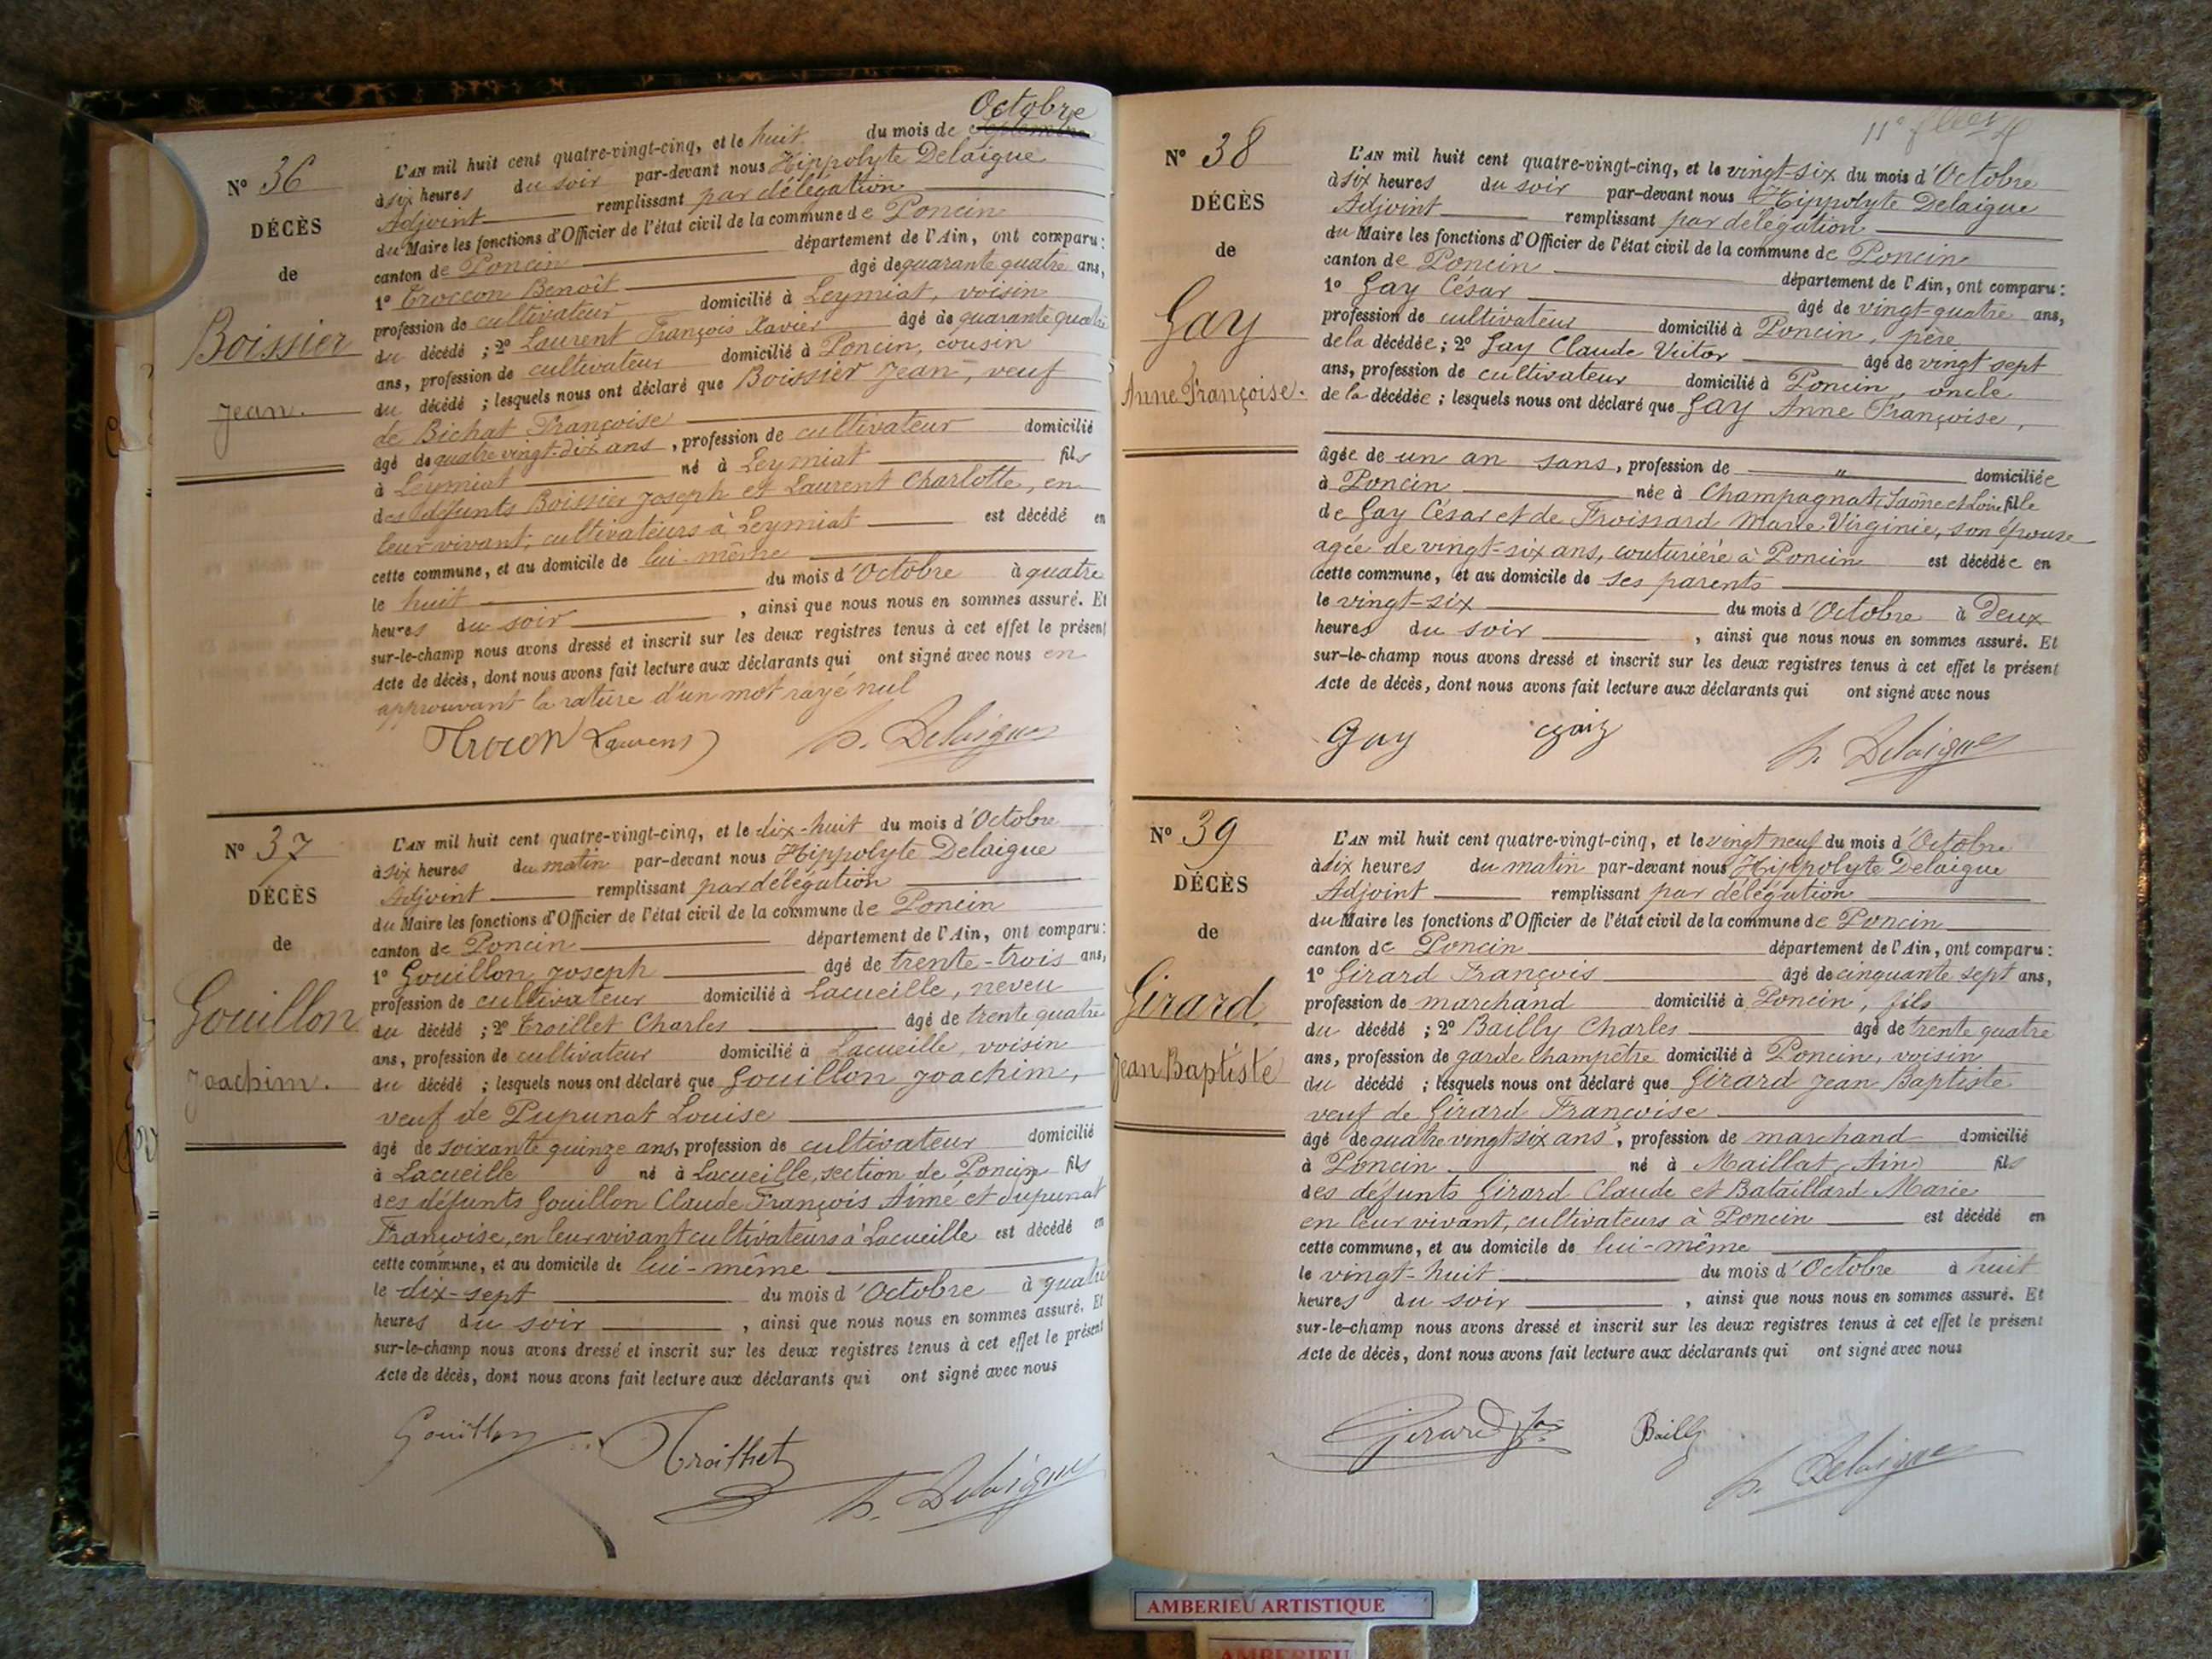 Octobre
L'AN mil huit cent quatre-vingt-cinq, et le huit du mois de septembre
N° 36
à six heures du soir par-devant nous Hippolyte Delaigue
Adjoint remplissant par délégation
DÉCÈS
du Maire les fonctions d'Officier de l'état civil de la commune de Poncin
de
canton de Poncin département de l'Ain, ont comparu :
1° Troccon Benoît âgé de quarante quatre ans,
Boissier
profession de cultivateur domicilié à Leymiat, voisin
du décédé ; 2° Laurent François Xavier âgé de quarante quatre
ans, profession de cultivateur domicilié à Poncin, cousin
Jean.
du décédé ; lesquels nous ont déclaré que Boissier Jean, veuf
de Bichat Françoise
âgé de quatre vingt-dix ans, profession de cultivateur domicilié
à Leymiat né à Leymiat fils
des défunts Boissier Joseph et Laurent Charlotte, en
leur vivant, cultivateurs à Leymiat est décédé en
cette commune, et au domicile de lui-même
le huit du mois d'Octobre à quatre
heures du soir, ainsi que nous nous en sommes assuré. Et
sur-le-champ nous avons dressé et inscrit sur les deux registres tenus à cet effet le présent
Acte de décès, dont nous avons fait lecture aux déclarants qui ont signé avec nous en
approuvant la rature d'un mot rayé nul
Trocon Laurent h. Delaigue
N° 37
L'AN mil huit cent quatre-vingt-cinq, et le dix-huit du mois d'Octobre
à six heures du matin par-devant nous Hippolyte Delaigue
DÉCÈS
Adjoint remplissant par délégation
du Maire les fonctions d'Officier de l'état civil de la commune de Poncin
de
canton de Poncin département de l'Ain, ont comparu :
1° Gouillon Joseph âgé de trente-trois ans,
Gouillon
profession de cultivateur domicilié à Lacueille, neveu
du décédé ; 2° Troillet Charles âgé de trente quatre
ans, profession de cultivateur domicilié à Lacueille, voisin
Joachim.
du décédé ; lesquels nous ont déclaré que Gouillon Joachim,
veuf de Pupunat Louise
âgé de soixante quinze ans, profession de cultivateur domicilié
à Lacueille né à Lacueille, section de Poncin fils
des défunts Gouillon Claude François Aimé et Pupunat
Françoise, en leur vivant cultivateurs à Lacueille est décédé en
cette commune, et au domicile de lui-même
le dix-sept du mois d'Octobre à quatre
heures du soir, ainsi que nous nous en sommes assuré. Et
sur-le-champ nous avons dressé et inscrit sur les deux registres tenus à cet effet le présent
Acte de décès, dont nous avons fait lecture aux déclarants qui ont signé avec nous
Gouillon Troillet h. Delaigue
11e
N° 38
L'AN mil huit cent quatre-vingt-cinq, et le vingt-six du mois d'Octobre
à six heures du soir par-devant nous Hippolyte Delaigue
DÉCÈS
Adjoint remplissant par délégation
du Maire les fonctions d'Officier de l'état civil de la commune de Poncin
de
canton de Poncin département de l'Ain, ont comparu :
1° Gay César âgé de vingt-quatre ans,
Gay
profession de cultivateur domicilié à Poncin, père
de la décédée ; 2° Gay Claude Victor âgé de vingt sept
ans, profession de cultivateur domicilié à Poncin, oncle
Anne Françoise.
de la décédée ; lesquels nous ont déclaré que Gay Anne Françoise,
âgée de un an sans, profession de " domiciliée
à Poncin née à Champagnat, Saône et Loire fille
de Gay César et de Froissard Marie Virginie, son épouse
agée de vingt-six ans, couturière à Poncin est décédée en
cette commune, et au domicile de ses parents
le vingt-six du mois d'Octobre à deux
heures du soir, ainsi que nous nous en sommes assuré. Et
sur-le-champ nous avons dressé et inscrit sur les deux registres tenus à cet effet le présent
Acte de décès, dont nous avons fait lecture aux déclarants qui ont signé avec nous
Gay h. Delaigue
N° 39
L'AN mil huit cent quatre-vingt-cinq, et le vingt neuf du mois d'Octobre
à dix heures du matin par-devant nous Hippolyte Delaigue
DÉCÈS
Adjoint remplissant par délégation
du Maire les fonctions d'Officier de l'état civil de la commune de Poncin
de
canton de Poncin département de l'Ain, ont comparu :
1° Girard François âgé de cinquante sept ans,
Girard
profession de marchand domicilié à Poncin, fils
du décédé ; 2° Bailly Charles âgé de trente quatre
ans, profession de garde champêtre domicilié à Poncin, voisin
Jean Baptiste
du décédé ; lesquels nous ont déclaré que Girard Jean Baptiste
veuf de Girard Françoise
âgé de quatre vingt six ans, profession de marchand domicilié
à Poncin né à Maillat, Ain fils
des défunts Girard Claude et Bataillard Marie
en leur vivant, cultivateurs à Poncin est décédé en
cette commune, et au domicile de lui-même
le vingt-huit du mois d'Octobre à huit
heures du soir, ainsi que nous nous en sommes assuré. Et
sur-le-champ nous avons dressé et inscrit sur les deux registres tenus à cet effet le présent
Acte de décès, dont nous avons fait lecture aux déclarants qui ont signé avec nous
Girard Bailly h. Delaigue
AMBERIEU ARTISTIQUE
AMBERIEU